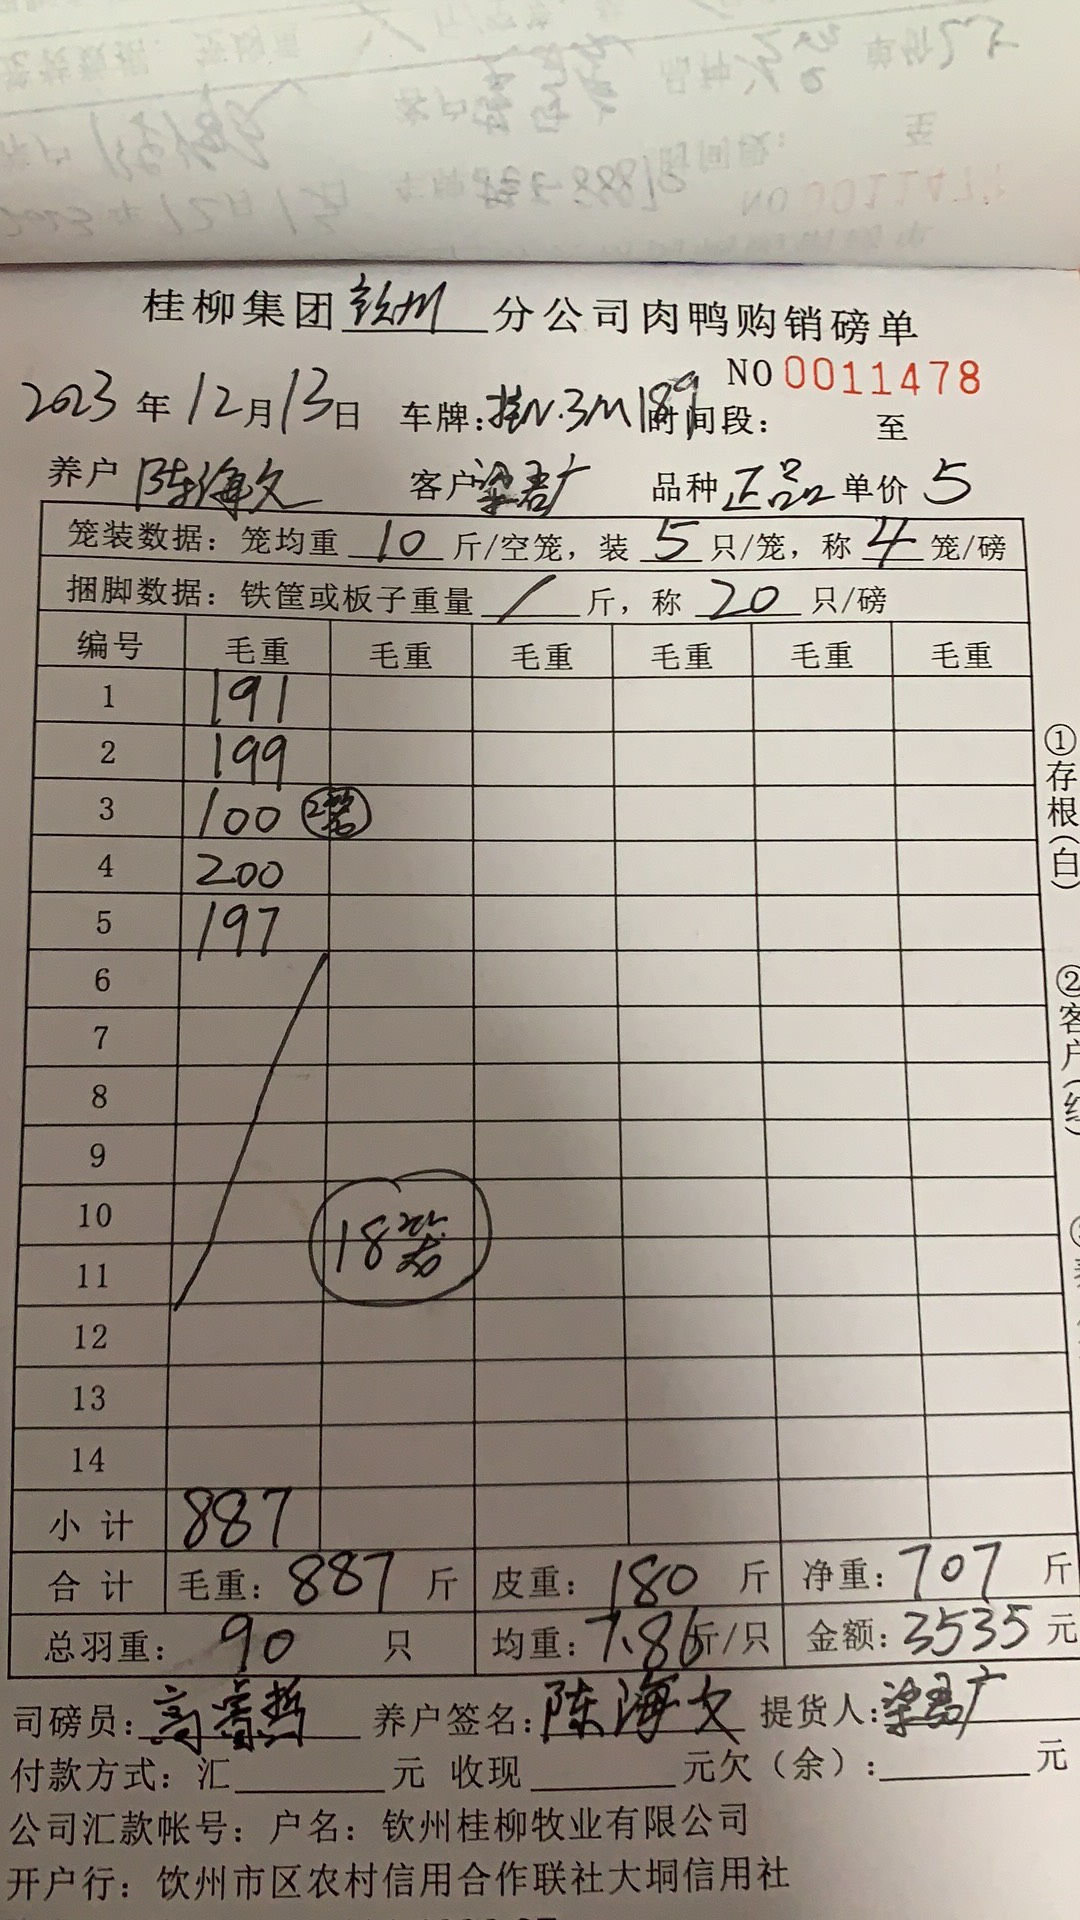 桂柳集团钦州分公司肉鸭购销磅单
NO 0011478
2023年12月13日 车牌:桂N·3M189 时间段: 至
养户 陈海文 客户 梁君广 品种 正品 单价 5
笼装数据: 笼均重 10 斤/空笼, 装 5 只/笼, 称 4 笼/磅
捆脚数据: 铁筐或板子重量 / 斤, 称 20 只/磅
编号 毛重 毛重 毛重 毛重 毛重 毛重
1 191
2 199
3 100 2笼
4 200
5 197
6
7
8
9
10
18笼
11
12
13
14
小计 887
合计 毛重: 887 斤 皮重: 180 斤 净重: 707 斤
总羽重: 90 只 均重: 7.86 斤/只 金额: 3535 元
司磅员: 高睿哲 养户签名: 陈海文 提货人: 梁君广
付款方式: 汇 元 收现 元欠(余): 元
公司汇款帐号: 户名: 钦州桂柳牧业有限公司
开户行: 钦州市区农村信用合作联社大垌信用社
①存根(白)
②客户(红)